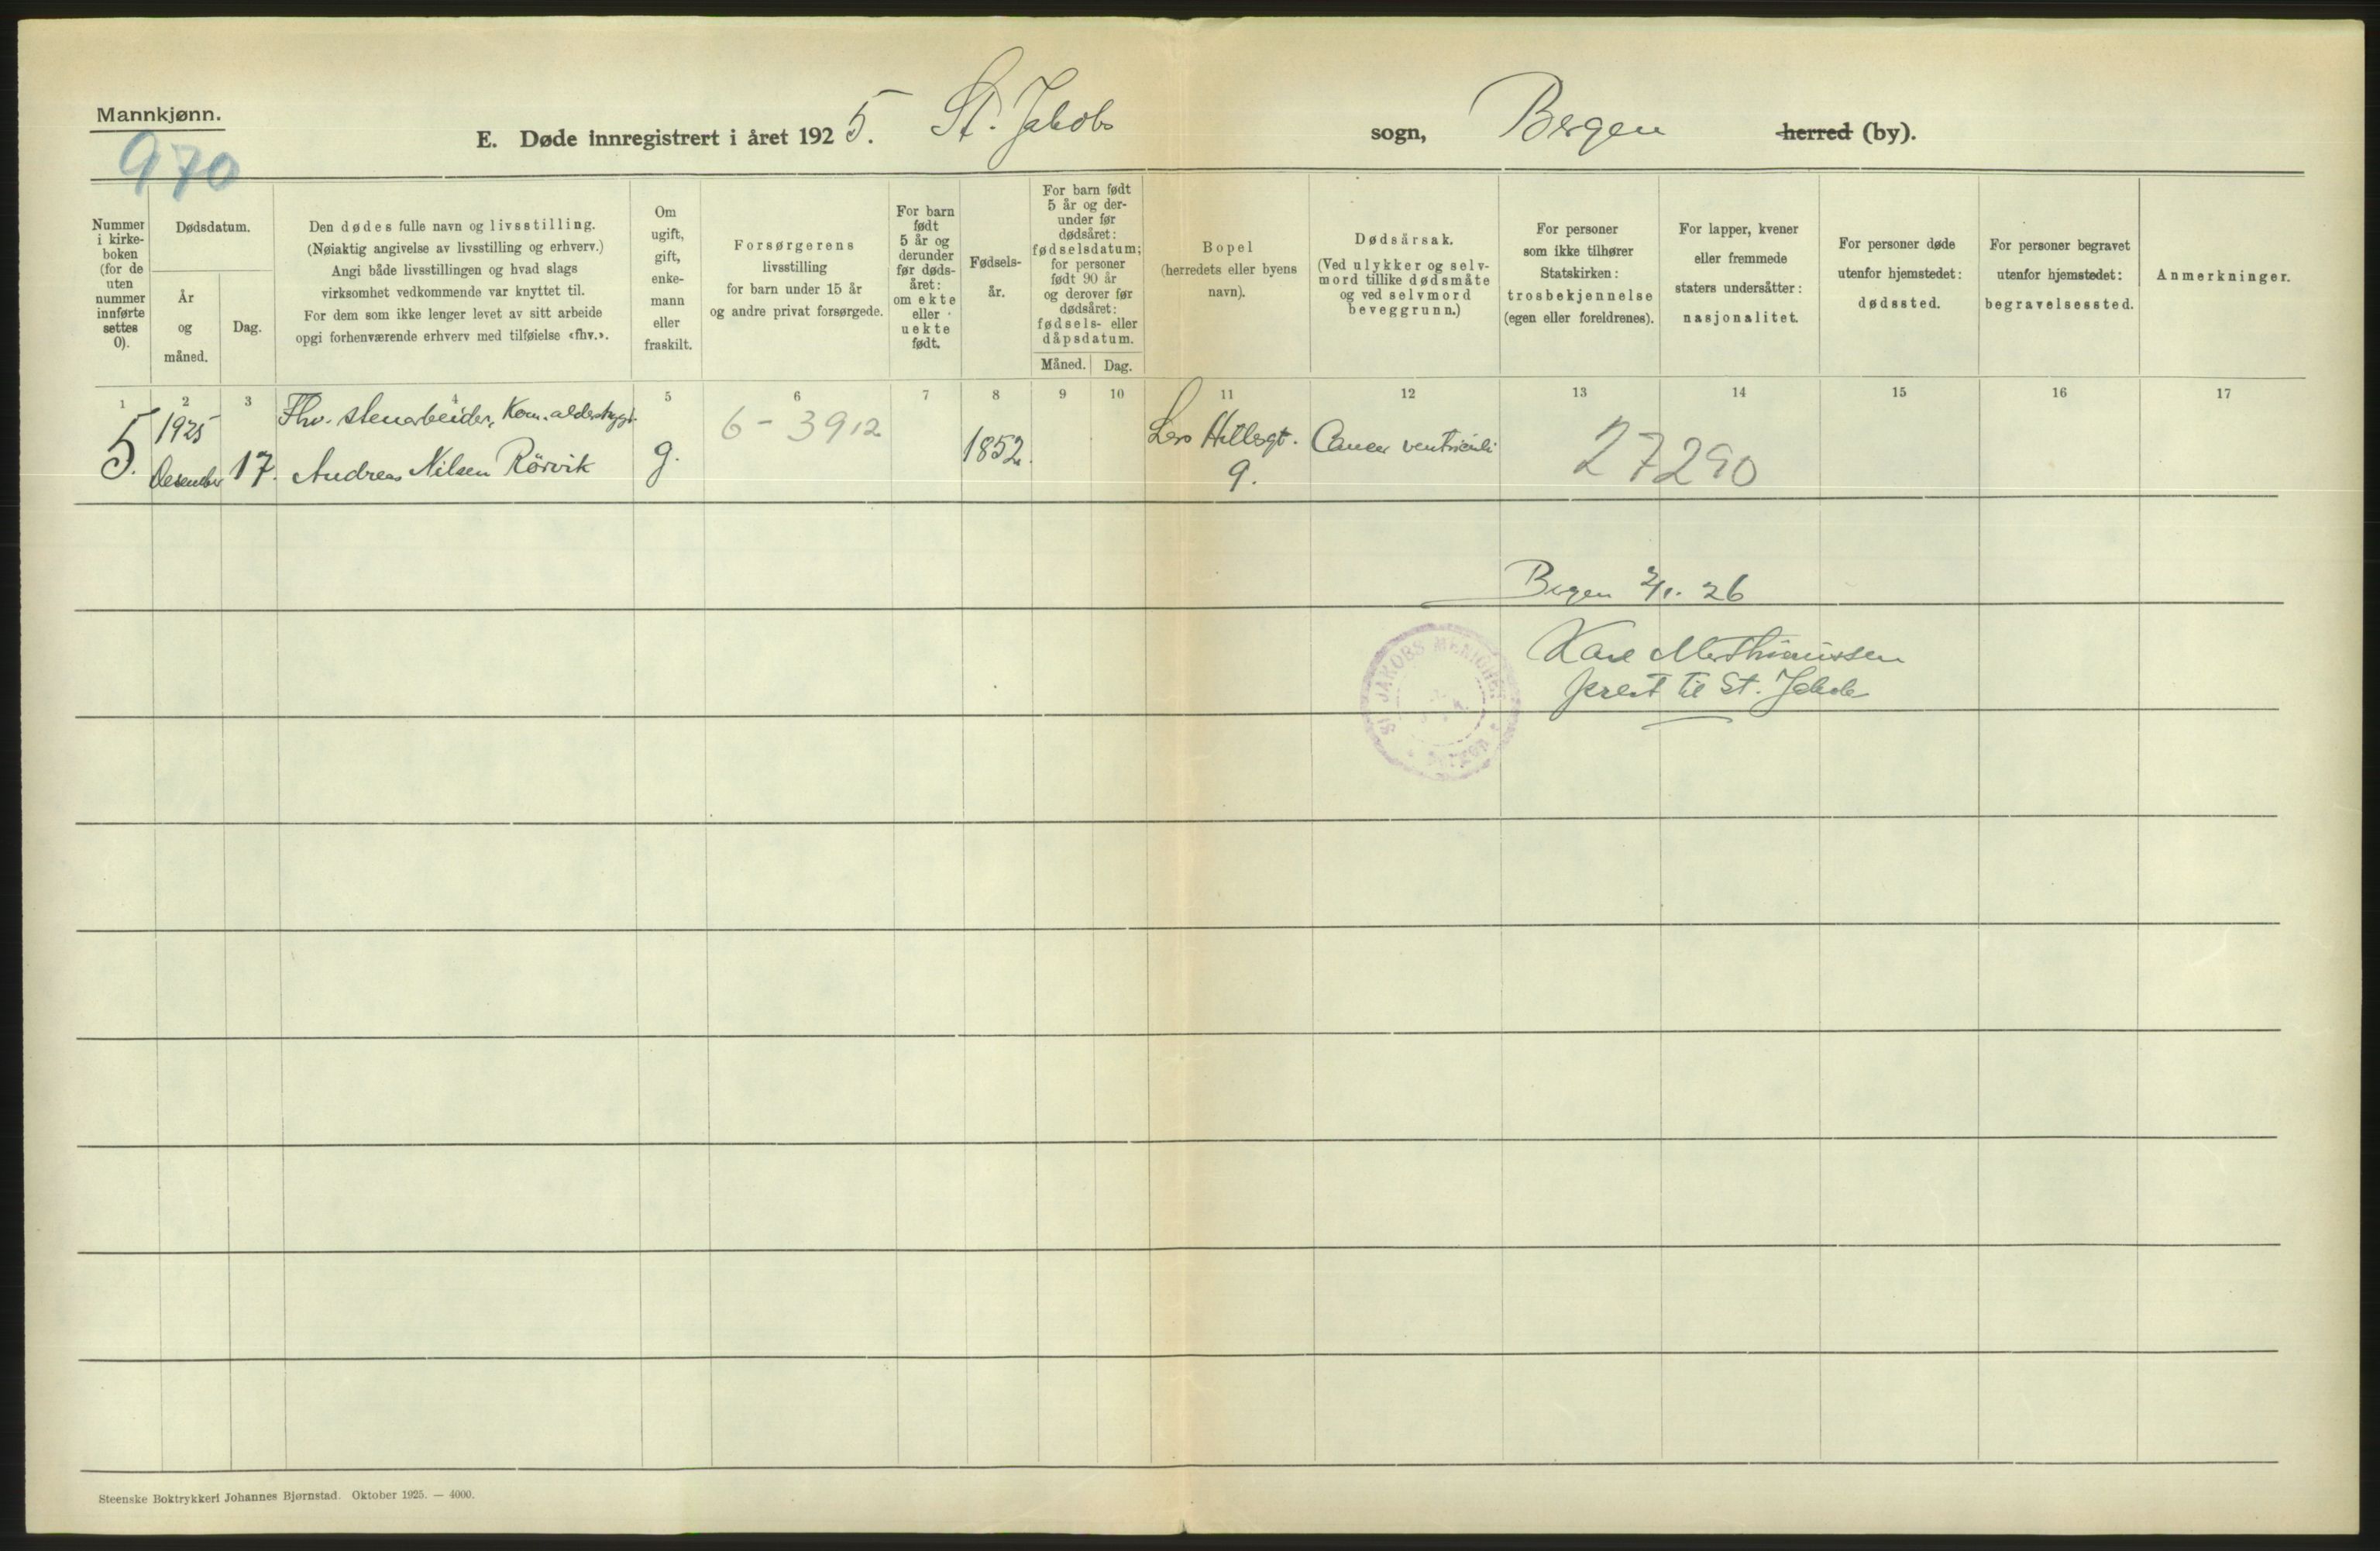 Mannkjønn.
970
E. Døde innregistrert i året 1925. St. Jakobs sogn, Bergen herred (by).
Nummer i kirke- boken (for de uten nummer innførte settes 0).
Dødsdatum.
År og måned.
Dag.
Den dødes fulle navn og livsstilling.
(Nøiaktig angivelse av livsstilling og erhverv.)
Angi både livsstillingen og hvad slags
virksomhet vedkommende var knyttet til.
For dem som ikke lenger levet av sitt arbeide
opgi forhenværende erhverv med tilføielse «fhv.».
Om ugift, gift, enke- mann eller fraskilt.
Forsørgerens
livsstilling
for barn under 15 år
og andre privat forsørgede.
For barn født 5 år og derunder før døds- året: om ekte eller uekte født.
Fødsels- år.
For barn født
5 år og der-
under før
dødsåret:
fødselsdatum;
for personer
født 90 år
og derover før
dødsåret:
fødsels- eller
dåpsdatum.
Måned.
Dag.
Bopel
(herredets eller byens
navn).
Dødsårsak.
(Ved ulykker og selv-
mord tillike dødsmåte
og ved selvmord
beveggrunn.)
For personer
som ikke tilhører
Statskirken:
trosbekjennelse
(egen eller foreldrenes).
For lapper, kvener
eller fremmede
staters undersåtter:
nasjonalitet.
For personer døde
utenfor hjemstedet:
dødssted.
For personer begravet
utenfor hjemstedet:
begravelsessted.
Anmerkninger.
1 2 3 4 5 6 7 8 9 10 11 12 13 14 15 16 17
5. 1925 Desember 17. Fhv. stenarbeider, Kom. alderstrygd.
Andreas Nilsen Rörvik g. 6-3912 1852. 9. Cancer ventriculi 27290
Bergen 2/1. 26
Karl Marthinussen
prest til St. Jakob
ST JAKOBS MENIGHET Bergen
Steenske Boktrykkeri Johannes Bjørnstad. Oktober 1925. — 4000.